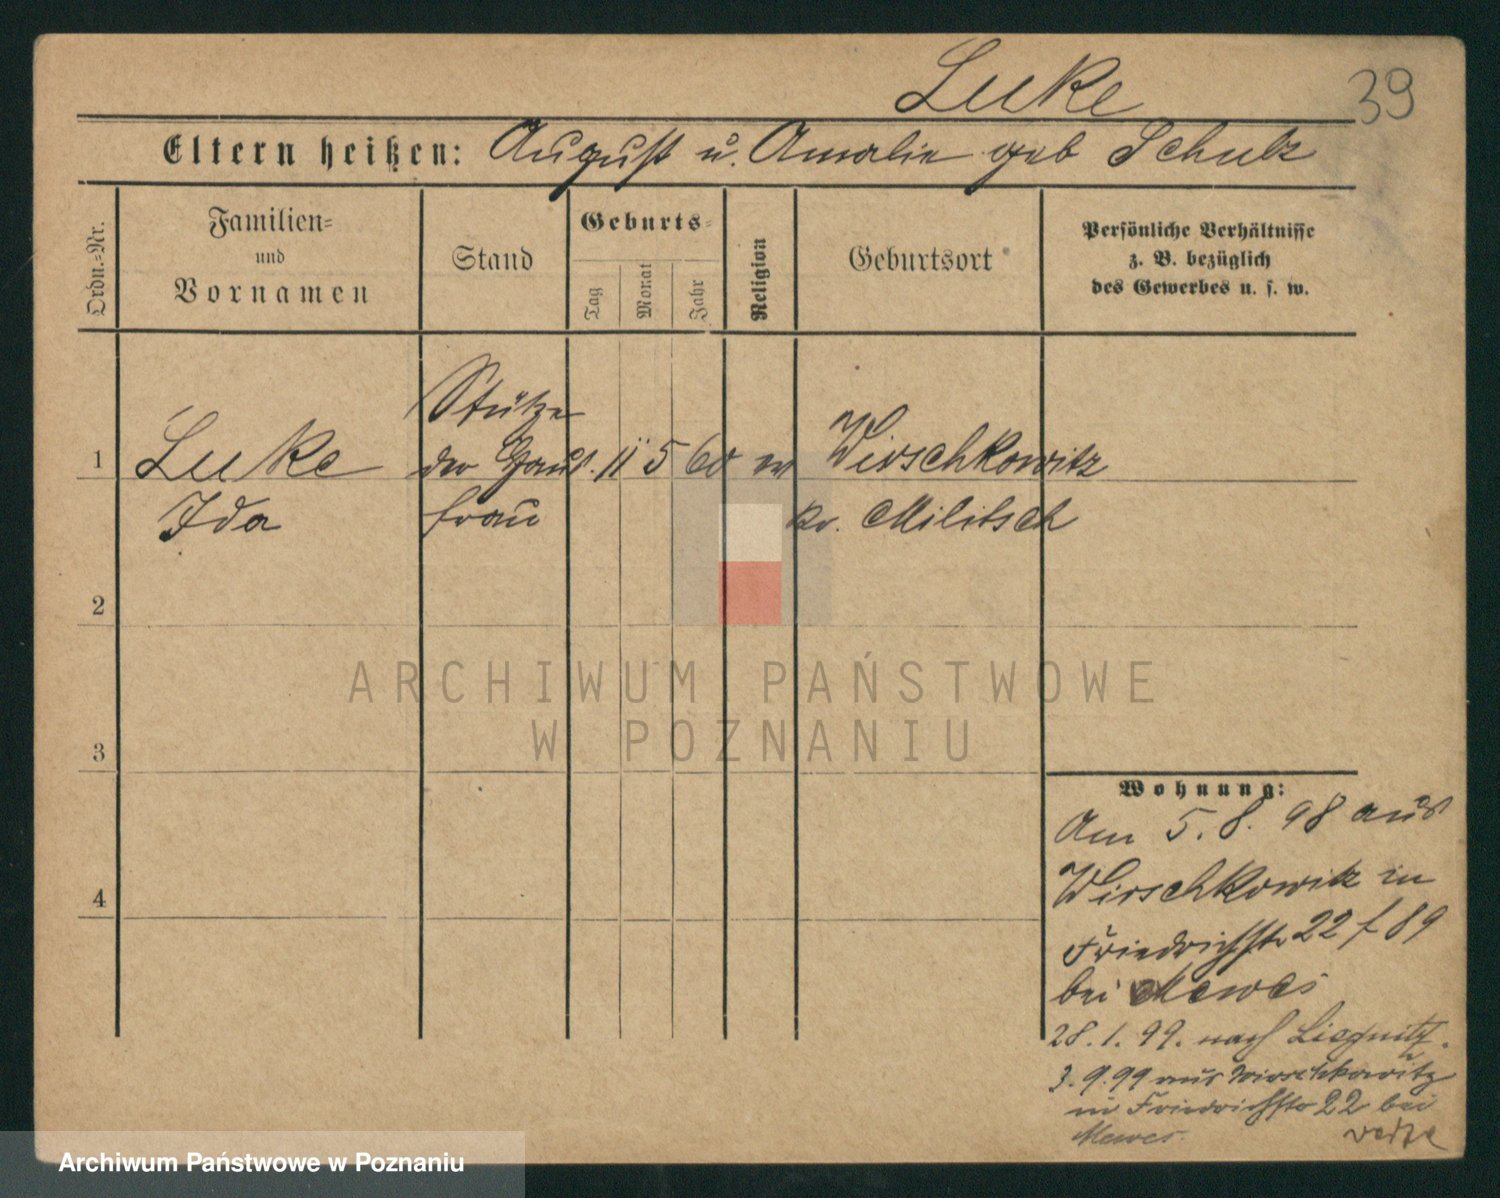 Luke
39
Eltern heißen: August u. Amalie geb Schulz
Ordn.=Nr.
Familien=
und
Vornamen
Stand
Geburts=
Tag
Monat
Jahr
Religion
Geburtsort
Persönliche Verhältnisse
z. B. bezüglich
des Gewerbes u. s. w.
Stütze
1 Luke der Hausf. 11 5 60 ev Wirschkowitz
Ida frau Kr. Militsch
2
3
4
Wohnung:
Am 5. 8. 98 aus
Wirschkowitz in
Friedrichstr 22 f 89
bei Mewes
28. 1. 99. nach Liegnitz.
3. 9. 99 aus Wirschkowitz
in Friedrichstr 22 bei
Mewes.
ARCHIWUM PAŃSTWOWE
W POZNANIU
Archiwum Państwowe w Poznaniu